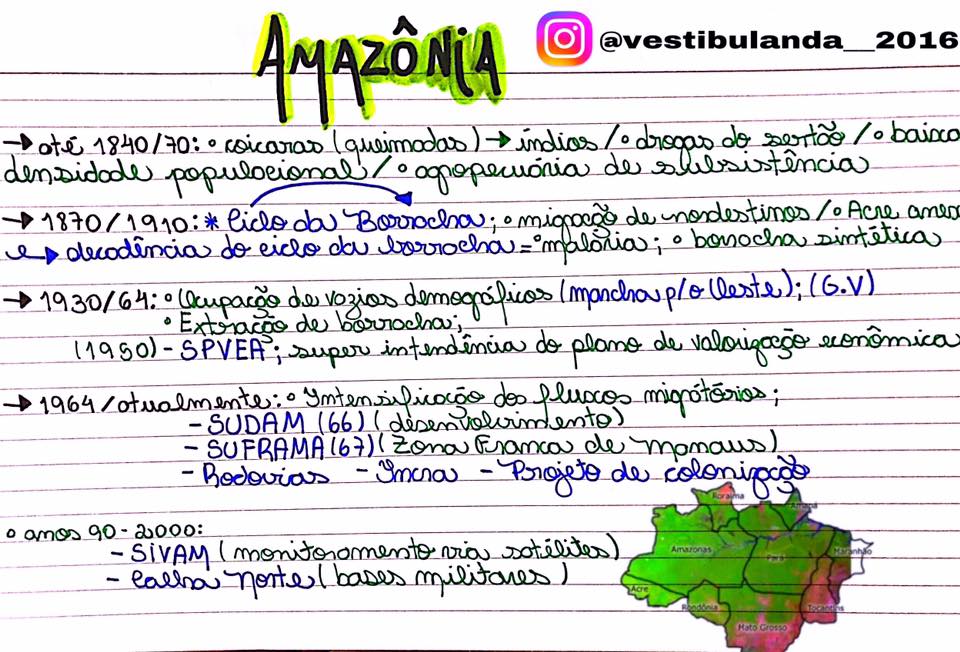 AMAZÔNIA
@vestibulanda__2016
→ até 1840/70: ° coicaras (queimadas) → índios /° drogas do sertão /° baixa
densidade populacional /° agropecuária de subsistência
→ 1870/1910: * Ciclo da Borracha; ° migração de nordestinos /° Acre anex
e → decadência do ciclo da borracha = °malária; ° borracha sintética
→ 1930/64: ° Ocupação de vazios demográficos (marcha p/o Oeste); (G.V)
° Extração de borracha;
(1950) - SPVEA; super intendência do plano de valorização econômica
→ 1964/atualmente: ° Intensificação dos fluxos migatórios;
- SUDAM (66) (desenvolvimento)
- SUFRAMA (67) (Zona Franca de Manaus)
- Rodovias - Incra - Projeto de colonização
° anos 90 - 2000:
- SIVAM (monitoramento via satélites)
- Calha Norte (bases militares)
Roraima
Amapá
Amazonas
Pará
Maranhão
Acre
Rondônia
Tocantins
Mato Grosso